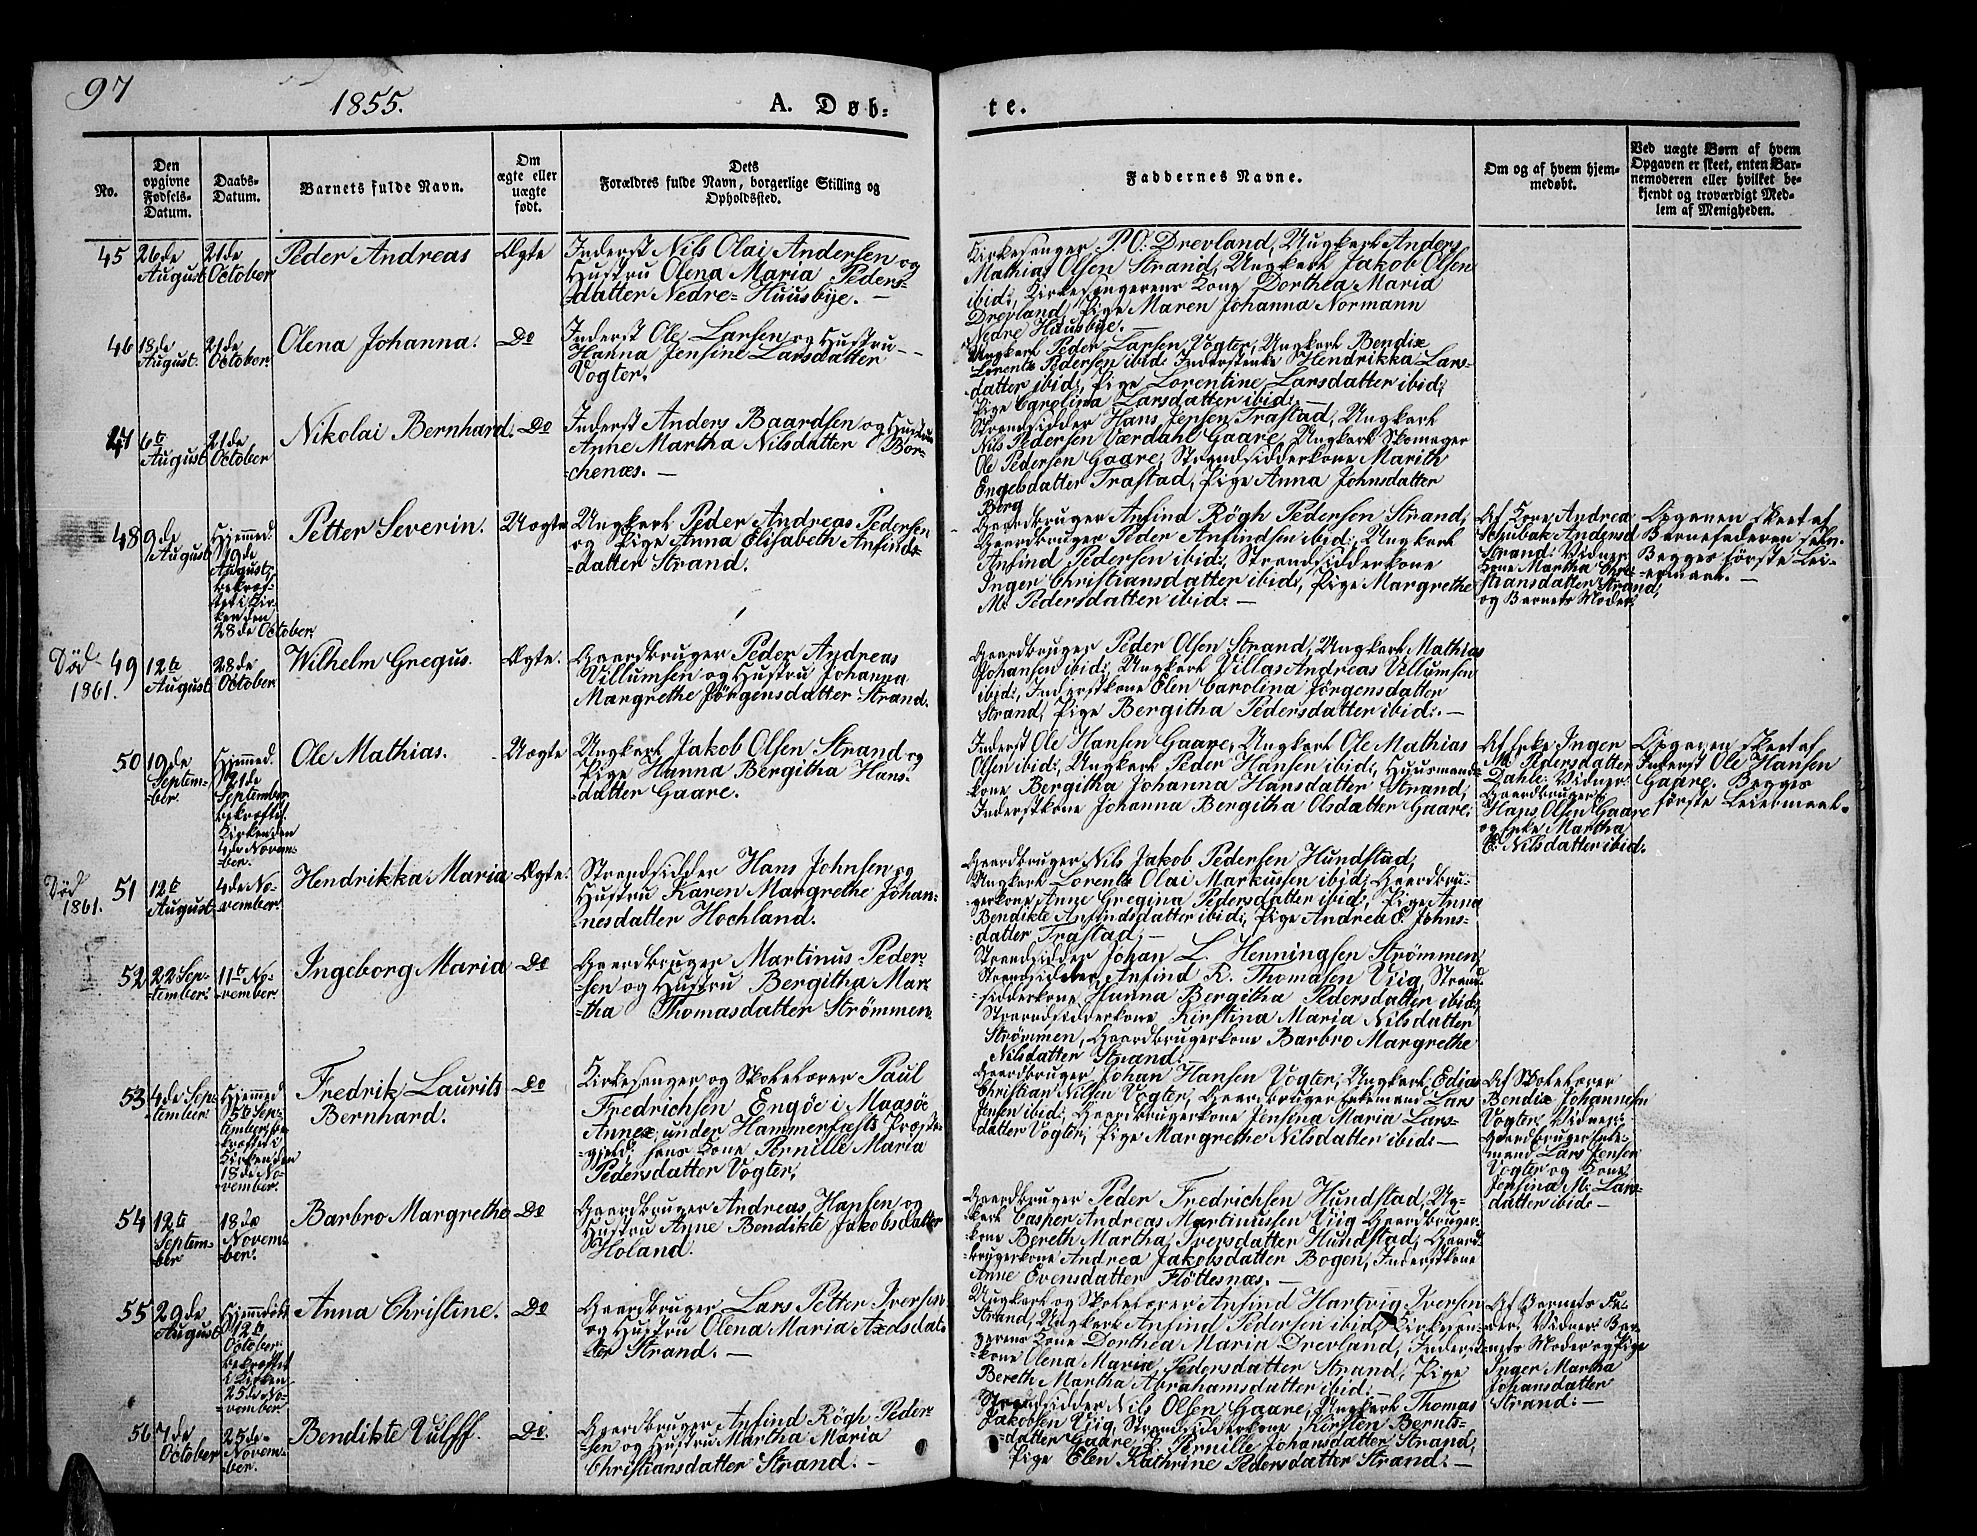 97
1855.
A. Døb-
te.
No.
Den
opgivne
Fødsels-
Datum.
Daabs-
Datum.
Barnets fulde Navn.
Om
ægte eller
uægte
født.
Dets
Forældres fulde Navn, borgerlige Stilling og
Opholdssted.
Faddernes Navne.
Om og af hvem hjem-
medøbt.
Ved uægte Børn af hvem
Opgaven er skeet, enten Bar-
nemoderen eller hvilket be-
kjendt og troværdigt Med-
lem af Menigheden.
45
26de
August
21de
October
Peder Andreas
Ægte
Inderst Nils Olai Andersen og
Hustru Olena Maria Peders-
datter Nedre-Huusbye. —
Kirkesanger P. O. Drevland, Ungkarl Anders
Mathias Olsen Strand, Ungkarl Jakob Olsen
ibid:, Kirkesangerens Kone Dorthea Maria
Drevland, Pige Maren Johanna Normann
Nedre Huusbye. —
46
18de
August.
21de
October.
Olena Johanna.
Do
Inderst Ole Larsen og Hustru
Hanna Jensine Larsdatter
Vogter.
Ungkarl Peder Larsen Vogter, Ungkarl Bendix
Lorents Pedersen ibid: Inderstenke Hendrikka Lars-
datter ibid:, Pige Lorentine Larsdatter ibid:,
Pige Carolina Larsdatter ibid: —
47
6te
August
21de
October
Nikolai Bernhard.
Do
Inderst Anders Baardsen og Hustru
Anne Martha Nilsdatter Bor-
chenæs. —
Strandsidder Hans Jensen Trastad, Ungkarl
Nils Pedersen Værdahl Gaare, Ungkarl Skomager
Ole Pedersen Gaare, Strandsidderkone Marith
Engelsdatter Trastad, Pige Anna Johnsdatter
Berg
48
9de
August
Hjemmed.
19de
August,
bekræf-
tet i Kir-
ken den
28de October.
Petter Severin.
Uægte
Ungkarl Peder Andreas Pedersen
og Pige Anna Elisabeth Anfinds-
datter Strand.
Gaardbruger Anfind Rögh Pedersen Strand,
Gaardbruger Peder Anfindsen ibid:, Ungkarl
Anfind Pedersen ibid:, Strandsidderkone
Inger Christiansdatter ibid:, Pige Margrethe
M. Pedersdatter ibid: —
Af Kone Andrea
Schubak Andersd
Strand: Vidner:
Kone Martha Chri-
stiansdatter Strand,
og Barnets Moder.
Opgaven skeet af
Barnefaderen selv.
Begges første Lei-
ermaal. —
Död
1861.
49
12te
August
28de
October
Wilhelm Gregus.
Ægte.
Gaardbruger Peder Andreas
Villumsen og Hustru Johanna
Margrethe Jörgensdatter Strand.
Gaardbruger Peder Olsen Strand, Ungkarl Mathias
Johansen ibid:, Ungkarl Villas Andreas Villumsen
ibid:, Inderstkone Elen Carolina Jörgensdatter
Strand, Pige Bergitha Pedersdatter ibid:. —
50
19de
Septem-
ber.
Hjemmed.
21de
September
bekræftet
Kirken den
4de Novem-
ber.
Ole Mathias.
Uægte
Ungkarl Jakob Olsen Strand og
Pige Hanna Bergitha Hans-
datter Gaare.
Inderst Ole Hansen Gaare, Ungkarl Ole Mathias
Olsen ibid:, Ungkarl Peder Hansen ibid:, Huusmands-
kone Bergitha Johanna Hansdatter Strand,
Inderstkone Johanna Bergitha Olsdatter Gaare.
Af Enke Inger
M. Pedersdatter
Dahle: Vidner:
Gaardbruger
Hans Olsen Gaare
og Enke Martha
E. Nilsdatter ibid:
Opgaven skeet af
Inderst Ole Hansen
Gaare. Begges
første Leiermaal.
Död
1861.
51
12te
August
4de No-
vember.
Hendrikka Maria
Ægte.
Strandsidder Hans Johnsen og
Hustru Karen Margrethe Johan-
nesdatter Hochland.
Gaardbruger Nils Jakob Pedersen Hundstad,
Ungkarl Lorents Olai Markussen ibid:, Gaardbru-
gerkone Anne Gregina Pedersdatter ibid:, Pige Anna
Bendikte Anfindsdatter ibid:, Pige Andrea E. Johns-
datter Trastad. —
52
22 Sep-
tember.
11te No-
vember
Ingeborg Maria
Do
Gaardbruger Martinus Peder-
sen og Hustru Bergitha Mar-
tha Thomasdatter Strömmen.
Strandsidder Johan L. Henningsen Strömmen,
Strandsidder Anfind K. Thomasen Viig, Strand-
sidderkone Hanna Bergitha Pedersdatter ibid:,
Strandsidderkone Kirstina Maria Nilsdatter
Strömmen, Gaardbrugerkone Barbro Margrethe
Nilsdatter Strand. —
53
4de Sep-
tember
Hjemmed
5te Sep-
tember, be-
kræftet i
Kirken den
18de No-
vember.
Fredrik Laurits
Bernhard.
Do
Kirkesanger og Skolelærer Paul
Fredrichsen Engöe i Maasöe
Annex, under Hammerfests Præste-
gjeld; hans Kone Pernille Maria
Pedersdatter Vogter.
Gaardbruger Johan Hansen Vogter, Ungkarl Edias
Christian Nilsen Vogter, Gaardbruger Enkemand Lars
Jensen ibid:, Gaardbrugerkone Jensina Maria Lars-
datter Vogter, Pige Margrethe Nilsdatter ibid: —
Af Skolelærer
Bendix Johannesen
Vogter. Vidner:
Gaardbruger Enke-
mand Lars Jensen
Vogter og Kone
Jensina M. Lars-
datter ibid: —
54
12te
Septem-
ber
18de
Novem-
ber.
Barbro Margrethe
Do
Gaardbruger Andreas Hansen og
Hustru Anne Bendikte Jakobsdatter
Holand.
Gaardbruger Peder Fredrichsen Hundstad, Ung-
karl Casper Andreas Martinussen Viig Gaardbruger-
kone Bereth Martha Iversdatter Hundstad, Gaard-
brugerkone Andrea Jakobsdatter Bogen, Inderstkone
Anne Evensdatter Flöttesnæs. —
55
29de
August
Hjemmedöbt
12te
October
bekræftet
i Kirken
25de No-
vember
Anna Christine.
Do
Gaardbruger Lars Petter Iversen
og Hustru Olena Maria Axelsdat-
ter Strand. —
Ungkarl og Skolelærer Anfind Hartvig Iversen
Strand, Ungkarl Anfind Pedersen ibid:, Kirkesan-
gerens Kone Dorthea Maria Drevland, Inderst-
kone Olena Maria Pedersdatter Strand, Pige
Bereth Martha Abrahamsdatter ibid. —
Af Barnets Fa-
der. Vidner: Bar-
nets Moder og Pige
Inger Martha
Johansdatter
Strand. —
56
7de
October
25de
Novem-
ber.
Bendikte Vulff.
Do.
Gaardbruger Anfind Rögh Peder-
sen og Hustru Martha Maria
Christiansdatter Strand. —
Strandsidder Nils Olsen Gaare, Ungkarl Thomas
Jakobsen Viig, Strandsidderkone Kirsten Bernts-
datter Gaare, P. Pernille Johansdatter Strand,
Pige Elen Kathrine Pedersdatter Strand. —